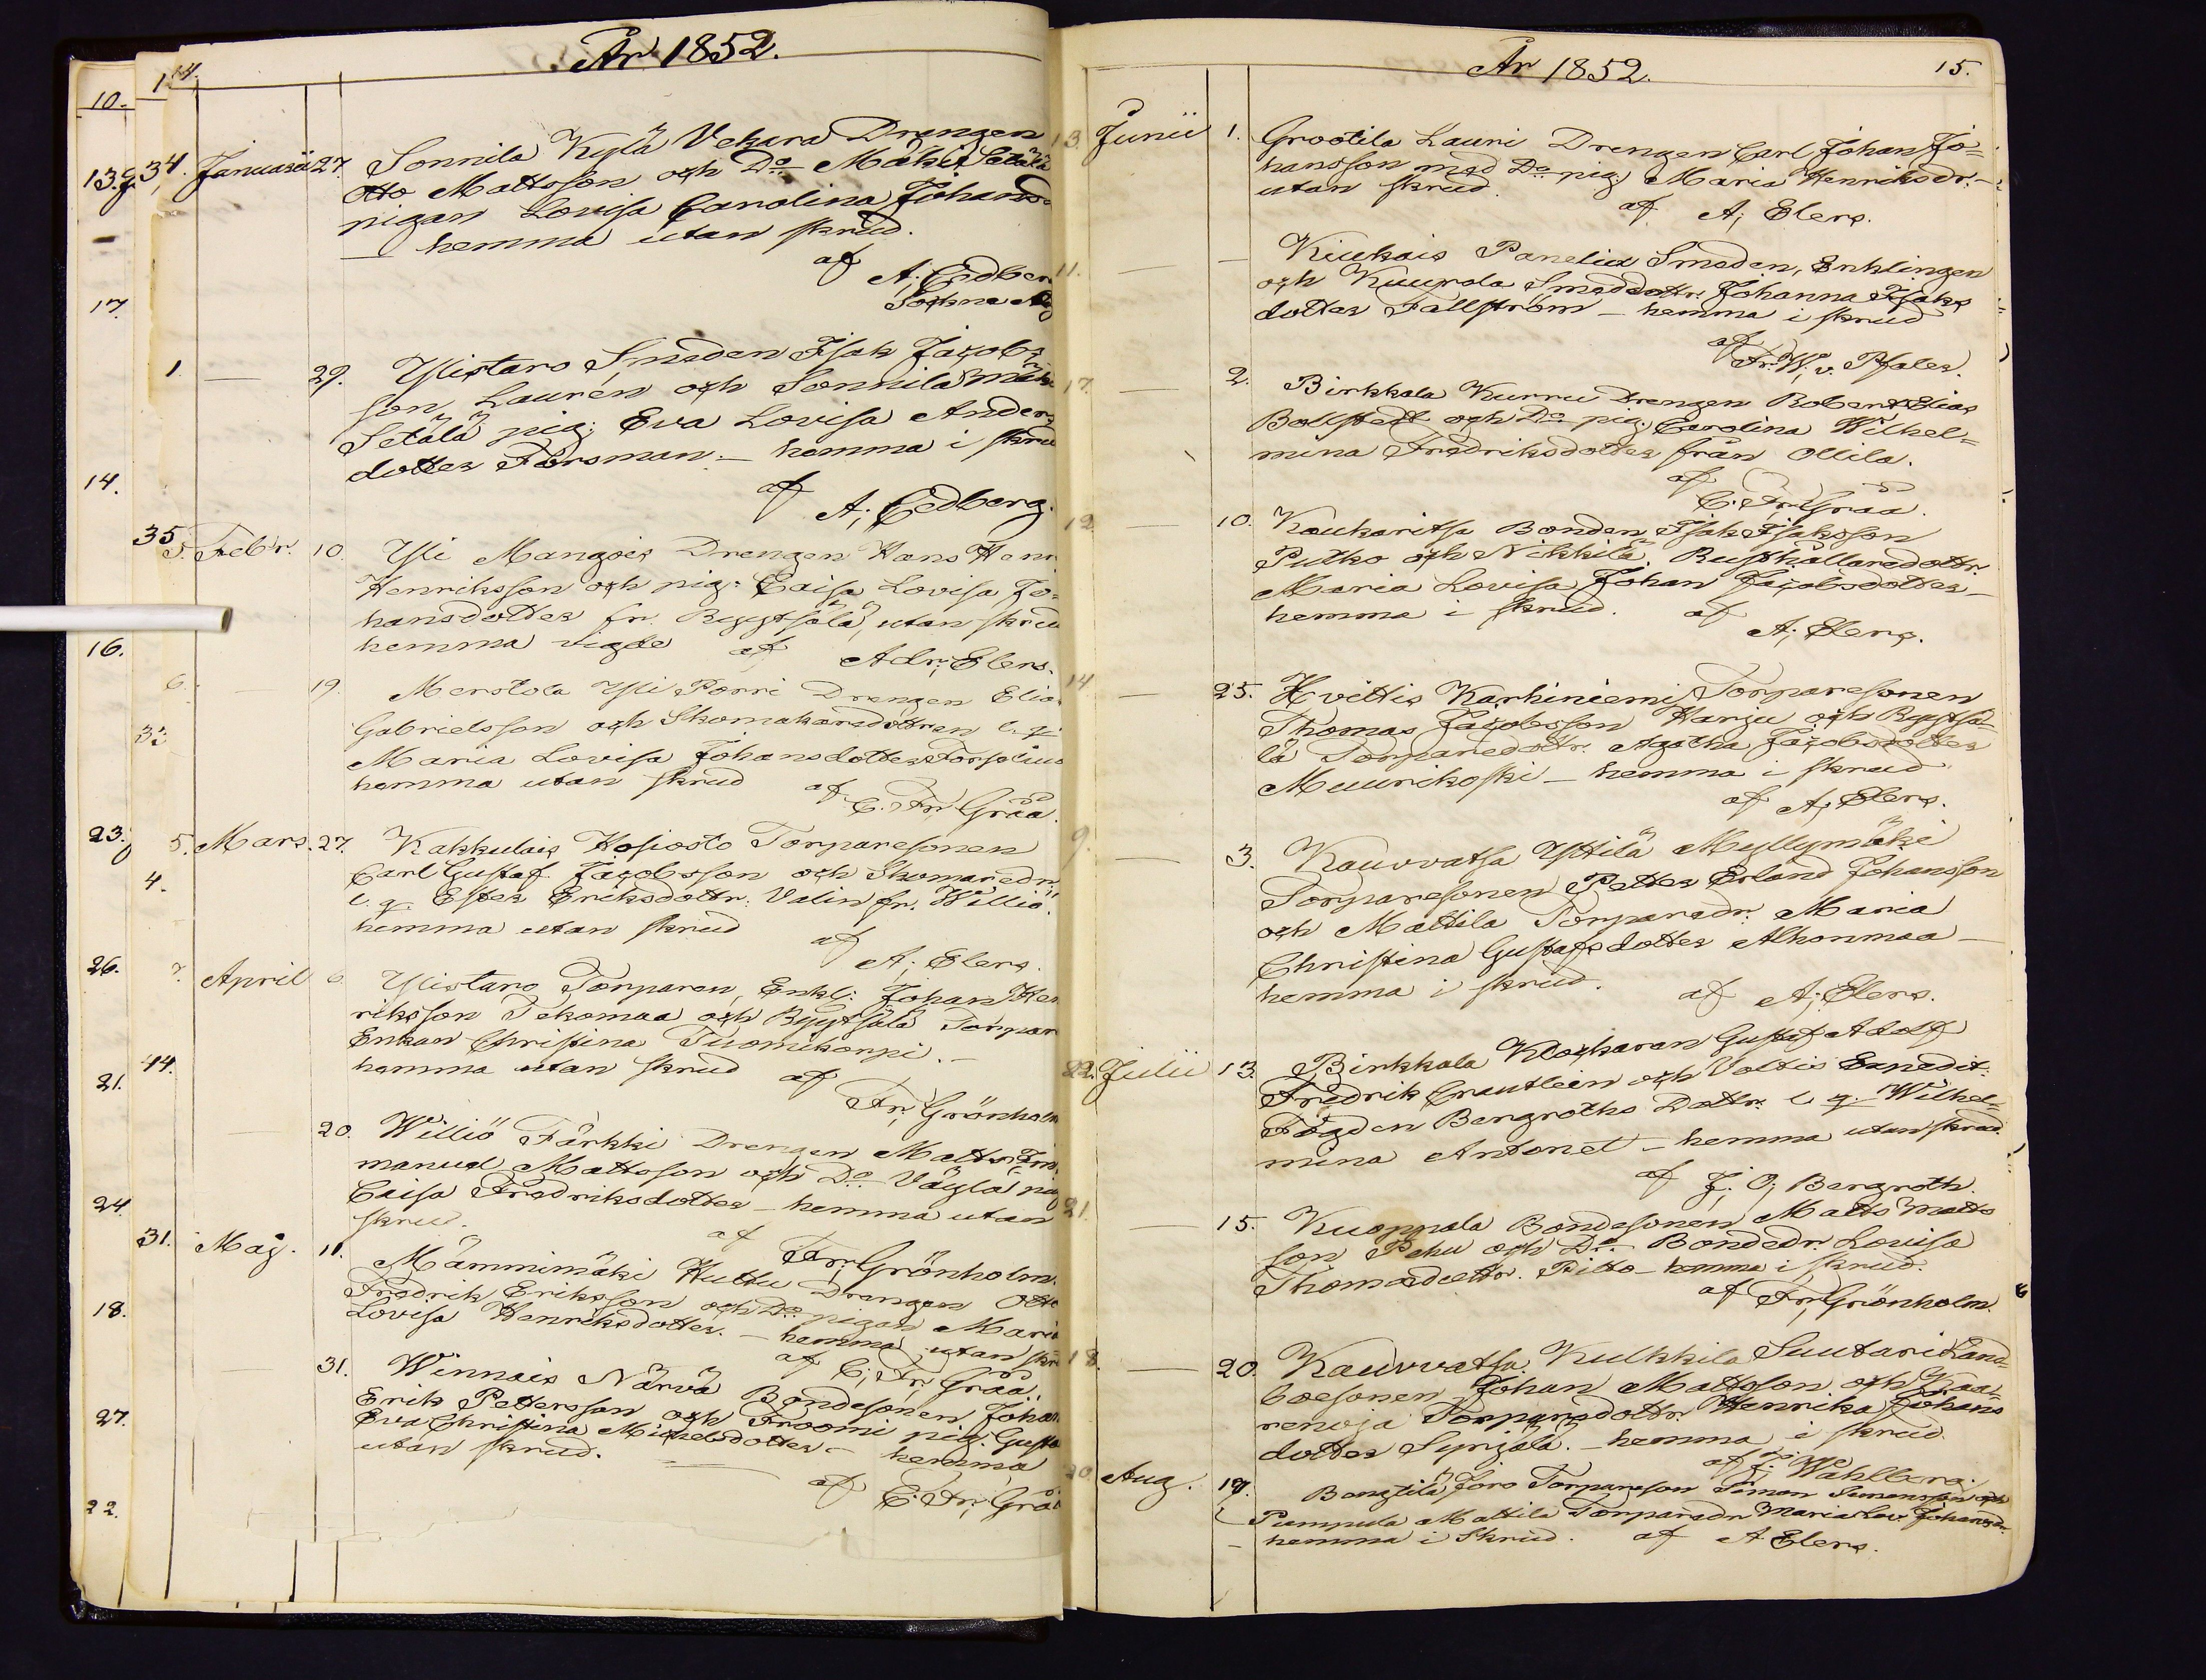 År 1852.
14.
10.
13. 34. Januarii 27. Sonnila Kylä Vekara Drengen
Otto Mattsson och Do Mäki Setälä
pigan Lovisa Carolina Johansd
hemma utan skrud.
af A; Cedber
Sockne
17.
1. — 29. Ylistaro Smeden Isak Jacobs
son Laurén och Sonnila
Setälä pig: Eva Lovisa Anders
dotter Forsman. — hemma i skru
14.
af A; Cedberg.
35
5. Febr. 10. Yli Mangois Drengen Hans Henr
Henriksson och pig: Caisa Lovisa Jo-
hansdotter fr. Ryytsälä, utan skrud
hemma vigde af Adr; Elers.
16.
6. — 19. Merstola Yli Porri Drengen Elias
Gabrielsson och Skomakaredottren l. q.
Maria Lovisa Johansdotter Forselius
hemma utan skrud af C. Fr; Gråå.
23. 5. Mars. 27. Kakkulais Hosiosto Torparesonen
Carl Gustaf Jacobsson och Skomaredr
4.
l. q. Ester Eriksdottr. Valin fr. Williö.
hemma utan skrud af A; Elers.
26. 7. April 6. Ylistaro Torparen, Enkl: Johan Hen
riksson Tekomaa och Ryytsälä Torpar
Enkan Christina Tuomikorpi. —
hemma utan skrud af Fr; Grönholm
21. 44.
— 20. Williö Färkki Drengen Matts Em
manuel Mattsson och Do Väylä pig
Caisa Fredriksdotter — hemma utan
skrud. af Fr; Grönholm.
24.
31. Maj. 11. Mämmimäki Huttu Drengen Otto
Fredrik Eriksson och Do pigan Maria
Lovisa Henriksdotter. — hemma utan skr
af C; Fr; Gråå.
18.
— 31. Winnais Närvä Bondesonen Johan
Erik Pettersson och Froomi pig. Gusta
Eva Christina Michelsdotter — hemma
utan skrud. — af C. Fr; Grå
27.
22.
År 1852. 15.
13. Junii 1. Grootila Lauri Drengen Carl Johan Jo=
hansson med Do pig; Maria Henriksdr. —
utan skrud. af A; Elers.
11. — — Kiukais Panelia Smeden, Enklingen
och Kuurola Smeddottr. Johanna Isaks
dotter Fallström — hemma i skrud
af Fr. W; v. Pfaler.
17. — 2. Birkkala Kurru Drengen Robert Elias
Bollstedt och Do pig. Carolina Wilhel=
mina Fredriksdotter från Ollila.
af C. Fr. Gråå.
12. — 10. Kaukaritsa Bonden Isak Isaksson
Putko och Nikkilä Rusthållaredottr.
Maria Lovisa Johan Jacobsdotter —
hemma i skrud. af A; Elers.
14. — 25. Hvittis Karhiniemi Torparesonen
Thomas Jacobsson Harju och Ryytsä=
lä Torparedottr. Agatha Jacobsdotter
Muurikoski — hemma i skrud
af A; Elers.
9. — 3. Kauvvatsa Yttilä Myllymäki
Torparesonen Petter Erland Johansson
och Mattila Torparedr. Maria
Christina Gustafsdotter Alhonmaa —
hemma i skrud. af A; Elers.
22. Julii 13. Birkkala Klockaren Gustaf Adolf
Fredrik Crautlein och Valtis Expedit:
Fogden Bergroths Dottr. l. q. Wilhel=
mina Antonet — hemma utan skrud.
af J; O; Bergroth.
21. — 15. Kuoppala Bondesonen Matts Matts
son Pehu och Do Bondedr. Lovisa
Thomasdottr. Pitto — hemma i skrud.
af Fr; Grönholm.
18. — 20. Kauvvatsa Kulkkila Suutari Land=
boesonen Johan Mattsson och Kaa=
renoja Torparedottr. Henrika Johans
dotter Syrjälä. — hemma i skrud.
af F. Wahlberg.
20. Aug. 17. Bengtilä Joro Torpareson Simon Simonsson och
Pumpula Mattila Torparedr Maria Lov. Johansdr.
— hemma i skrud. af A Elers.